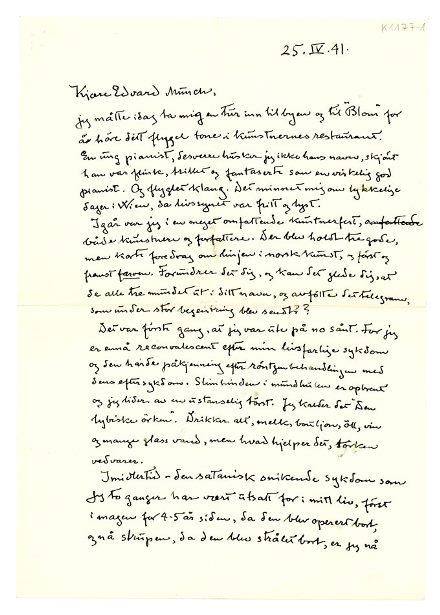 K1177-1
25. IV. 41.
Kjære Edvard Munch,
jeg måtte idag ta mig en tur inn til byen og til "Blom" for
å höre ditt flygel tone i Kunstnernes restaurant.
En ung pianist, desverre husker jeg ikke hans navn, skjönt
han var flink, stillet og fantaserte som en virkelig god
pianist. Og flyglet klang. Det minnet mig om lykkelige
dager i Wien, da livssynet var fritt og lyst.
Igår var jeg i en meget omfattende kunstnerfest, omfattende
både kunstnere og forfattere. Der blev holdt tre gode,
men korte foredrag om linjen i norsk kunst, og först og
fremst farven. Forundrer det dig, og kan det glede dig, at
de alle tre mundet ut i ditt navn, og avfötte det telegram,
som under stor begeistring blev sendt?
Det var förste gang, at jeg var ute på no sånt. For jeg
er ennå reconvalescent efter min livsfarlige sykdom
og den hårde påkjenning efter röntgenbehandlingen med
dens eftersykdom. Slimhinden i mundhulen er opbrent
og jeg lider av en ustanselig törst. Jeg kalder det "Den
lybiske örken". Drikker alt, melk, bouljong, öll, vin
og mange glass vand, men hvad hjelper det, törken
vedvarer.
Imidlertid – den satanisk snikende sykdom som
jeg to ganger har vært utsatt for i mitt liv, först
i magen for 4-5 år siden, da den blev operert bort,
og nå strupen, da den blev strålet bort, er jeg nå